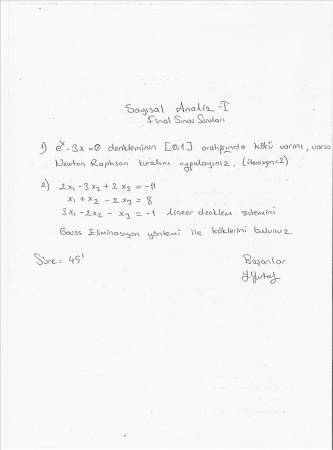 Sayısal Analiz-I
Final Sınav Soruları
1) e^x - 3x = 0 denkleminin [0,1] aralığında kökü varmı, varsa
Newton Raphson kuralını uygulayınız. (iterasyon=2)
2) 2x₁ - 3x₂ + 2x₃ = -11
x₁ + x₂ - 2x₃ = 8
3x₁ - 2x₂ - x₃ = -1 lineer denklem sistemini
Gauss Eliminasyon yöntemi ile köklerini bulunuz.
Süre: 45'
Başarılar